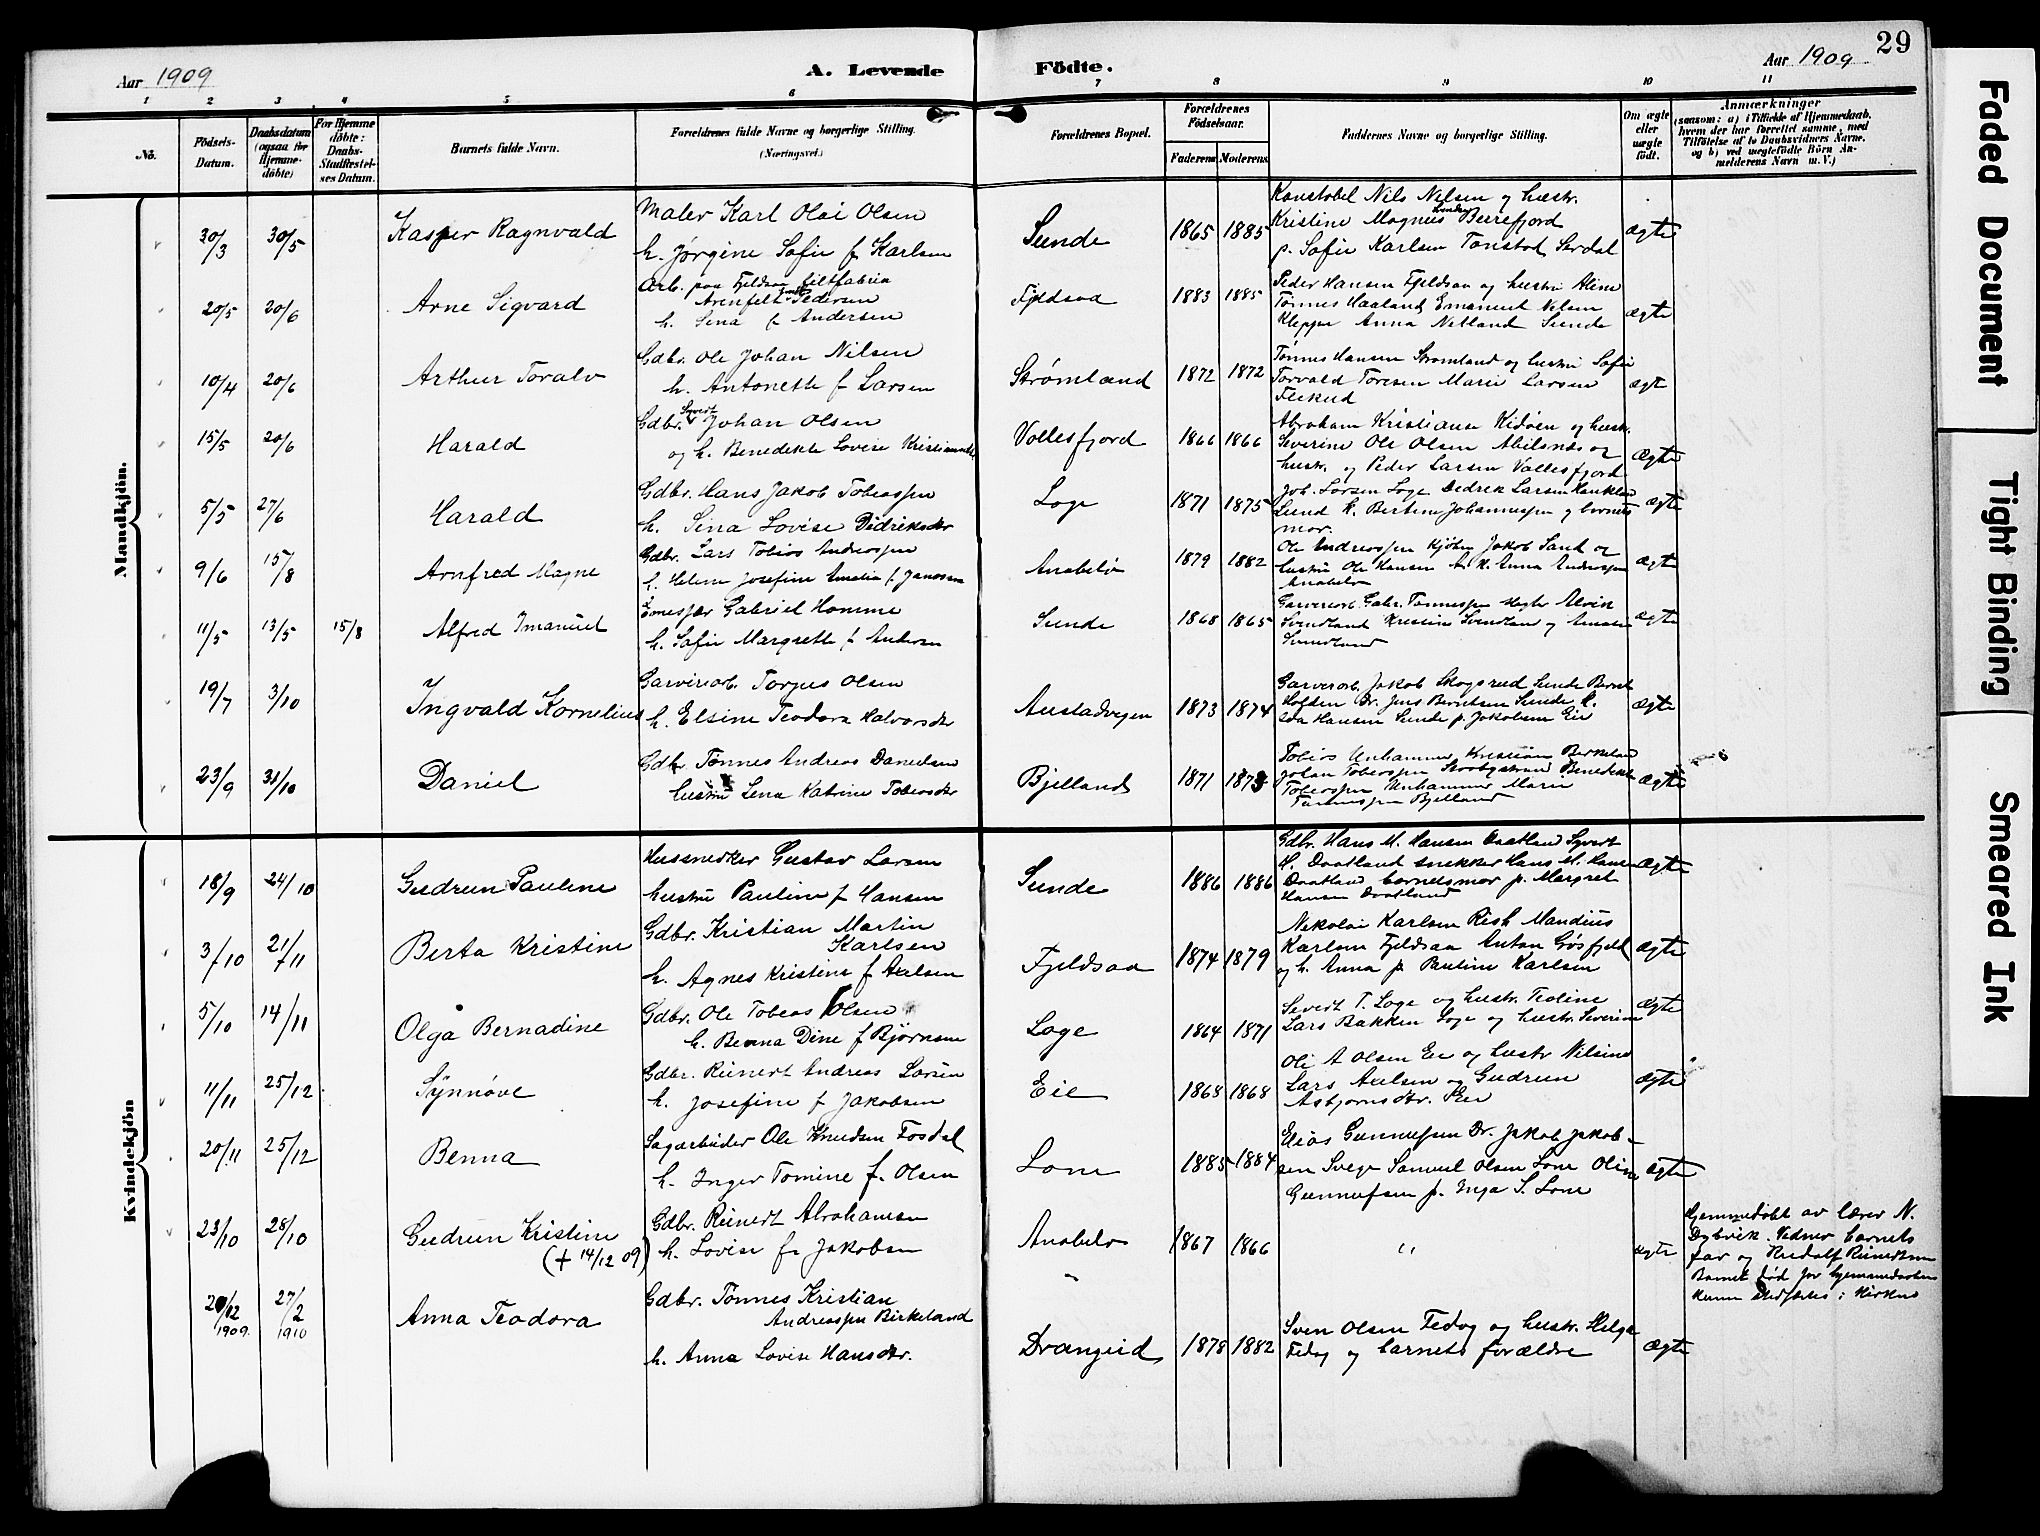 29
Aar 1909
A. Levende Födte.
Aar 1909
1 2 3 4 5 6 7 8 9 10 11
No.
Födsels-Datum.
Daabsdatum (ogsaa for Hjemmedöbte)
For Hjemmedöbte: Daabs-Stadfæstelses Datum.
Barnets fulde Navn.
Forældrenes fulde Navne og borgerlige Stilling.
(Næringsvei.)
Forældrenes Bopæl.
Forældrenes Födselsaar.
Faderens Moderens
Faddernes Navne og borgerlige Stilling.
Om ægte eller uægte födt.
Anmærkninger
(saasom: a) i Tilfælde af Hjemmedaab, hvem der har forrettet samme, med Tilföielse af to Daabsvidners Navne, og b) ved uægtefödte Börn Anmelderens Navn m. V.)
Mandkjön.
30/3 30/5 Kasper Ragnvald
Maler Karl Olai Olsen
h. Jørgine Sofie f Karlsen
Sunde 1865 1885
Konstabel Nils Nilsen og hustr.
Kristine Magnus
p. Sofie Karlsen Tonstad Serdal
ægte
20/5 20/6 Arne Sigvard
Arb. paa Fjeldsaa filtfabrik
Arenfelt Pedersen
h. Sena f Andersen
Fjeldsaa 1883 1885
Peder Hansen Fjeldsaa og hustru Aline
Tønnes Haaland Emanuel Nilsen
Kleppe Anna Netland Sunde
ægte
10/4 20/6 Arthur Toralv
Gdbr. Ole Johan Nilsen
h. Antonette f Larsen
Strømland 1872 1872
Tønnes Hansen Strømland og hustru Sofie
Torvald Toresen Marie Larsen
ægt
15/5 20/6 Harald
Gdbr. Syvert Johan Olsen
og h. Benedikte Lovise
Vollesfjord 1866 1866
Abraham Kristianse Kidøen og hustr.
Severine Ole Olsen Abilsnes og
hustr. og Peder Larsen Vollesfjord
Ægte
5/5 27/6 Harald
Gdbr. Hans Jakob Tobiassen
h. Sena Lovise Didriksdtr
Loge 1871 1875
Joh. Larsen Loge Dedrek Larsen
Lund K. Bertine Johannessen og barnets
mor.
ægte
9/6 15/8 Arnfred Magne
Gdbr. Lars Tobias Andreassen
h. Helene Josefine Amalia f Janssen
Anabelø 1879 1882
Ole Andreassen Kjøbm Jakob Sand og
hustru Ole Hansen K. Anna Andreassen
Anabelø
ægt
11/5 13/5 15/8 Alfred Imanuel
Gabriel Homme
h. Sofie Margrethe f. Andersen
Sunde 1868 1865
Svindland Kristine Svindland og
Svindland
ægte
19/7 3/10 Ingvald Kornelius
Garveriarb. Torjus Olsen
h. Elsine Teodora Halvorsdtr
Austadvegen 1873 1874
Garverarb. Jakob Skogsrud Sunde Bernt
Hofsten Dr. Jens Berntsen Sunde K.
Ida Hansen Sunde p. Jakobsen Eie
ægte
23/9 31/10 Daniel
Gdbr Tønnes Andreas Danielsen
hustru Lena Katrine Tobiasdtr
Bjelland 1871 1873
Tobias Unhammer Kristian Birkeland
Johan Tobiassen Benedikte
Tobiassen Unhammer Marie
Tønnessen Bjelland
ægte
Kvindekjön
18/9 24/10 Gudrun Pauline
Hussnedker Gustav Larsen
hustru Pauline f Hansen
Sunde 1886 1886
Gdbr. Hans M. Hansen Daatland Syvert
H. Daatland snekker Hans M. Hansen
Daatland barnets mor p. Margret
Hansen Daatland
ægte
3/10 21/11 Berta Kristine
Gdbr. Kristian Martin
Karlsen
h. Agnes Kristine f Axelsen
Fjeldsaa 1874 1879
Nekolai Karlsen Risk Mandius
Karlsen Fjeldsaa Anton Gosfjeld
og h. Anna p Pauline Karlsen
ægte
5/10 14/11 Olga Bernadine
Gdbr. Ole Tobias Olsen
h. Benna Dine f Bjørnsen
Loge 1864 1871
Severt T. Loge og hustr. Teoline
Lars Bakken Loge og hustr. Severine
Ægte
11/11 25/12 Synnøve
Gdbr. Reinert Andreas Larsen
h. Josefine f Jakobsen
Eie 1868 1868
Ole A Olsen Eie og hustr Nilsine
Lars Axelsen og Gudrun
Asbjørnsdtr. Eie
ægte
20/11 25/12 Benna
Sagarbeider Ole Knudsen Fosdal
h. Inger Tomine f. Olsen
Lone 1885 1884
Elias Gunnufsen Dr. Jakob Jakob-
sen Svege Samuel Olsen Lone Oline
Gunnufsen p. Inga S. Lone
Ægte
23/10 28/10 Gudrun Kristine
(+ 14/12 09)
Gdbr. Reinert Abrahamsen
h. Lovise f. Jakobsen
Anabelø 1867 1866
"
ægte
Hjemmedøbt av lærer N.
Dybvik. Vidner barnets
far og Rudolf Reinertsen
Barnet død før hjemmedaaben
kunne stadfæstes i kirken
20/12 1909. 27/2 1910 Anna Teodora
Gdbr. Tønnes Kristian
Andreassen Birkeland
h. Anna Lovise Hansdtr.
Drangeid 1878 1882
Sven Olsen Fedog og hustr. Helga
Fedog og barnets forældre
Ægte
Faded Document
Tight Binding
Smeared Ink